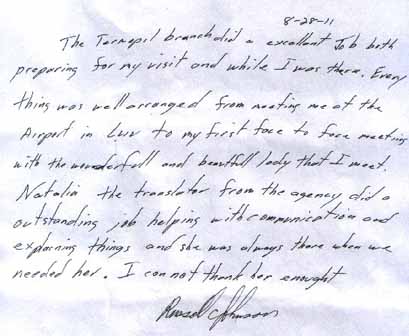 8-28-11
The Ternepil branch did a excellent Job both
preparing for my visit and while I was there. Every
thing was well arranged from meeting me at the
Airport in Luv to my first face to face meeting
with the wonderfull and beautfull lady that I meet.
Natalia the translator from the agency did a
outstanding job helping with communication and
explarning things and she was always there when we
needed her. I can not thank her enought
Russel C Johnson